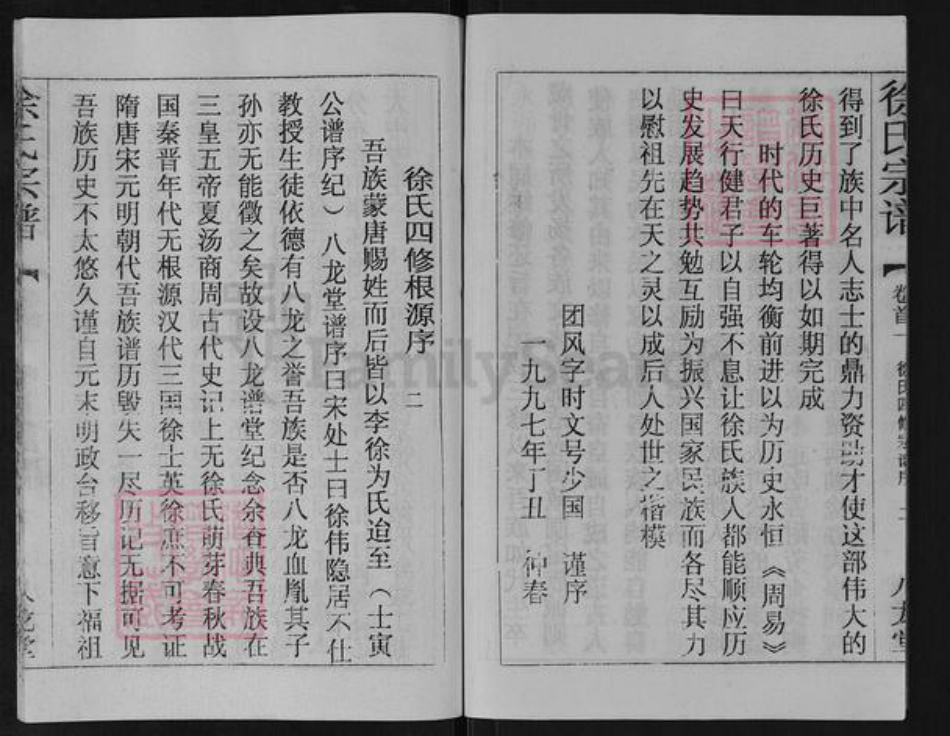 徐氏宗谱
卷首一
徐氏四修宗谱序
二
八龙堂
得到了族中名人志士的鼎力资助才使这部伟大的
徐氏历史巨著得以如期完成
时代的车轮均衡前进以为历史永恒《周易》
曰天行健君子以自强不息让徐氏族人都能顺应历
史发展趋势共勉互励为振兴国家民族而各尽其力
以慰祖先在天之灵以成后人处世之楷模
团风字时文号少国 谨序
一九九七年丁丑 仲春
徐氏四修根源序 二
吾族蒙唐赐姓而后皆以李徐为氏迨至（士寅
公谱序纪）八龙堂谱序曰宋处士曰徐伟隐居不仕
教授生徒依德有八龙之誉吾族是否八龙血胤其子
孙亦无能徵之矣故设八龙谱堂纪念余查典吾族在
三皇五帝夏汤商周古代史记上无徐氏萌芽春秋战
国秦晋年代无根源汉代三国徐士英徐庶不可考证
隋唐宋元明朝代吾族谱历毁失一尽历记无据可见
吾族历史不太悠久谨自元末明政台移旨意下福祖
徐氏宗谱
八龙堂
FamilySearch